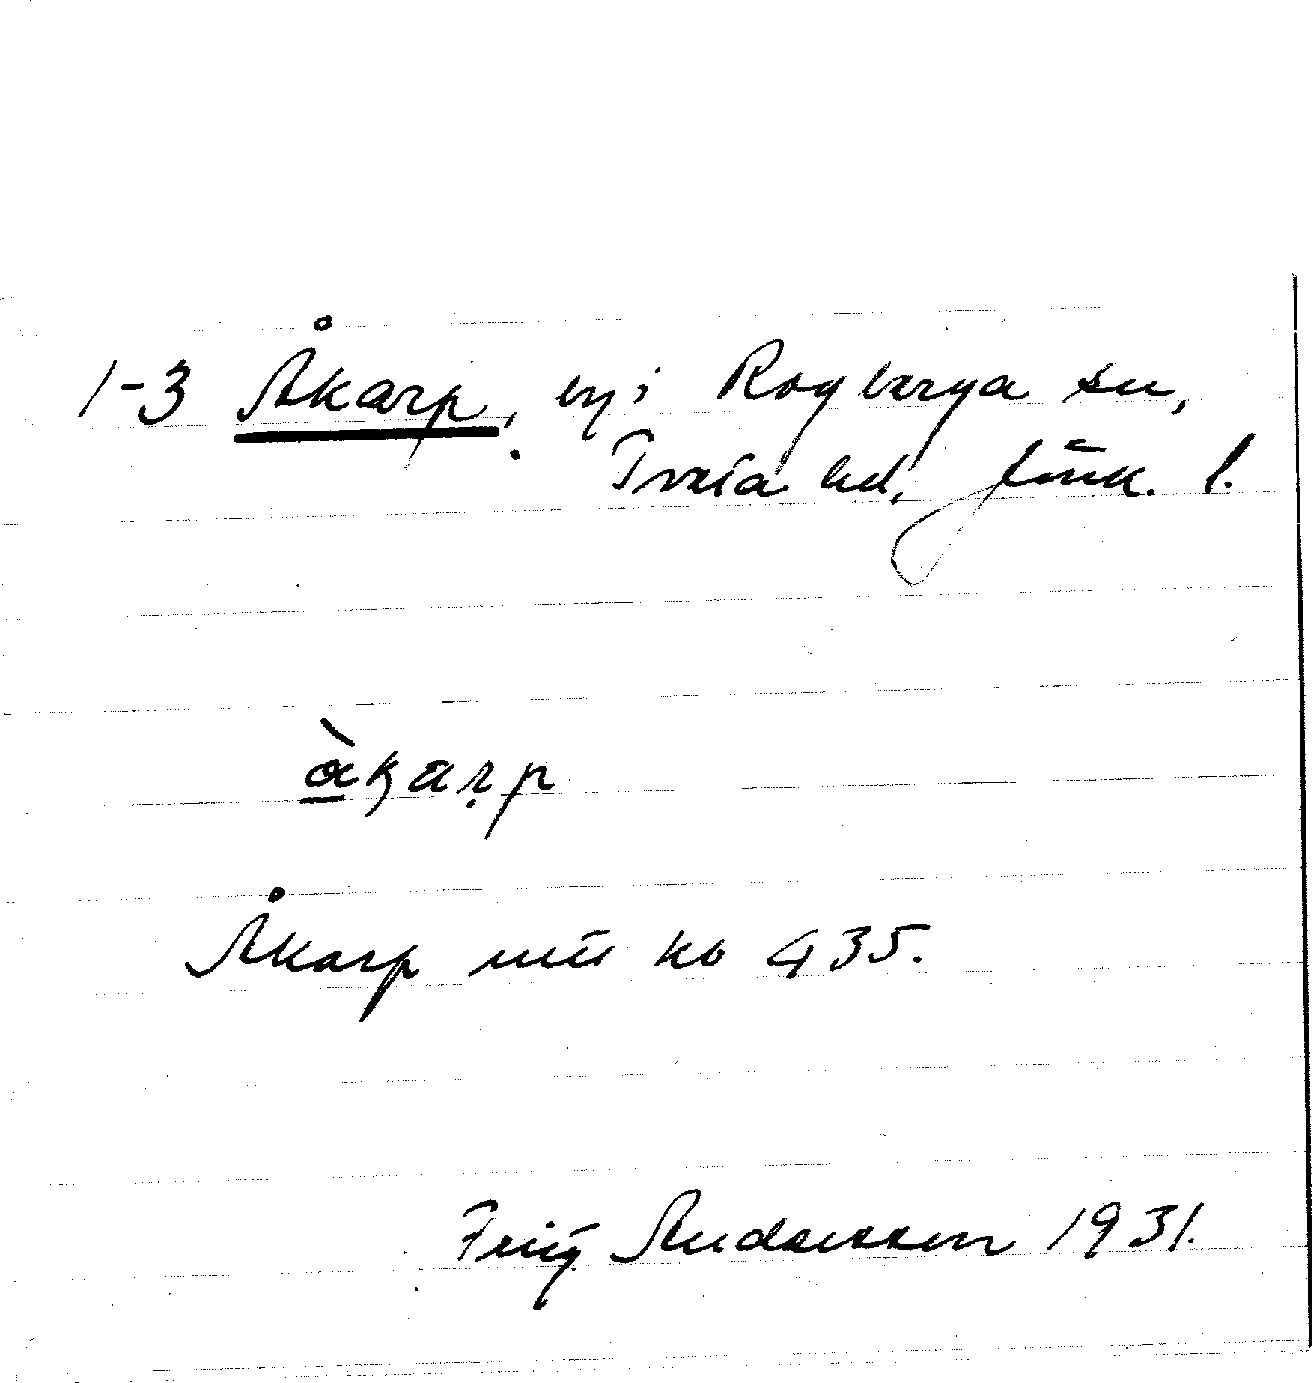 1-3 Åkarp, by i Rogberga sn,
Tveta hd, Jönk. l.
àkarp
Åkarp mtl kb 435.
Fritz Andersson 1931.